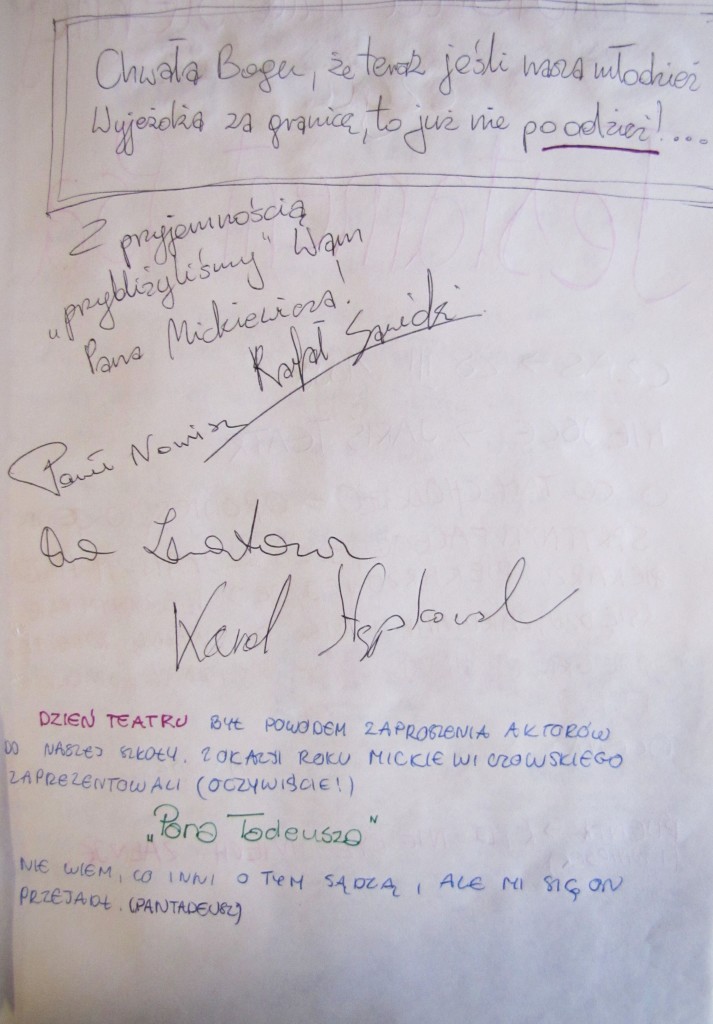 Chwała Bogu, że teraz jeśli nasza młodzież
Wyjeżdża za granicę, to już nie po odzież!...
Z przyjemnością
„przybliżyliśmy" Wam
Pana Mickiewicza!
Rafał Sawicki
Paweł Nowisz
Karol
DZIEŃ TEATRU BYŁ POWODEM ZAPROSZENIA AKTORÓW
DO NASZEJ SZKOŁY. Z OKAZJI ROKU MICKIEWICZOWSKIEGO
ZAPREZENTOWALI (OCZYWIŚCIE!)
„Pana Tadeusza"
NIE WIEM, CO INNI O TYM SĄDZĄ, ALE MI SIĘ ON
PRZEJADŁ. (PANTADEUSZ)